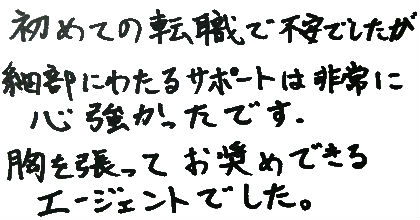 初めての転職で不安でしたが
細部にわたるサポートは非常に
心強かったです.
胸を張ってお奨めできる
エージェントでした。